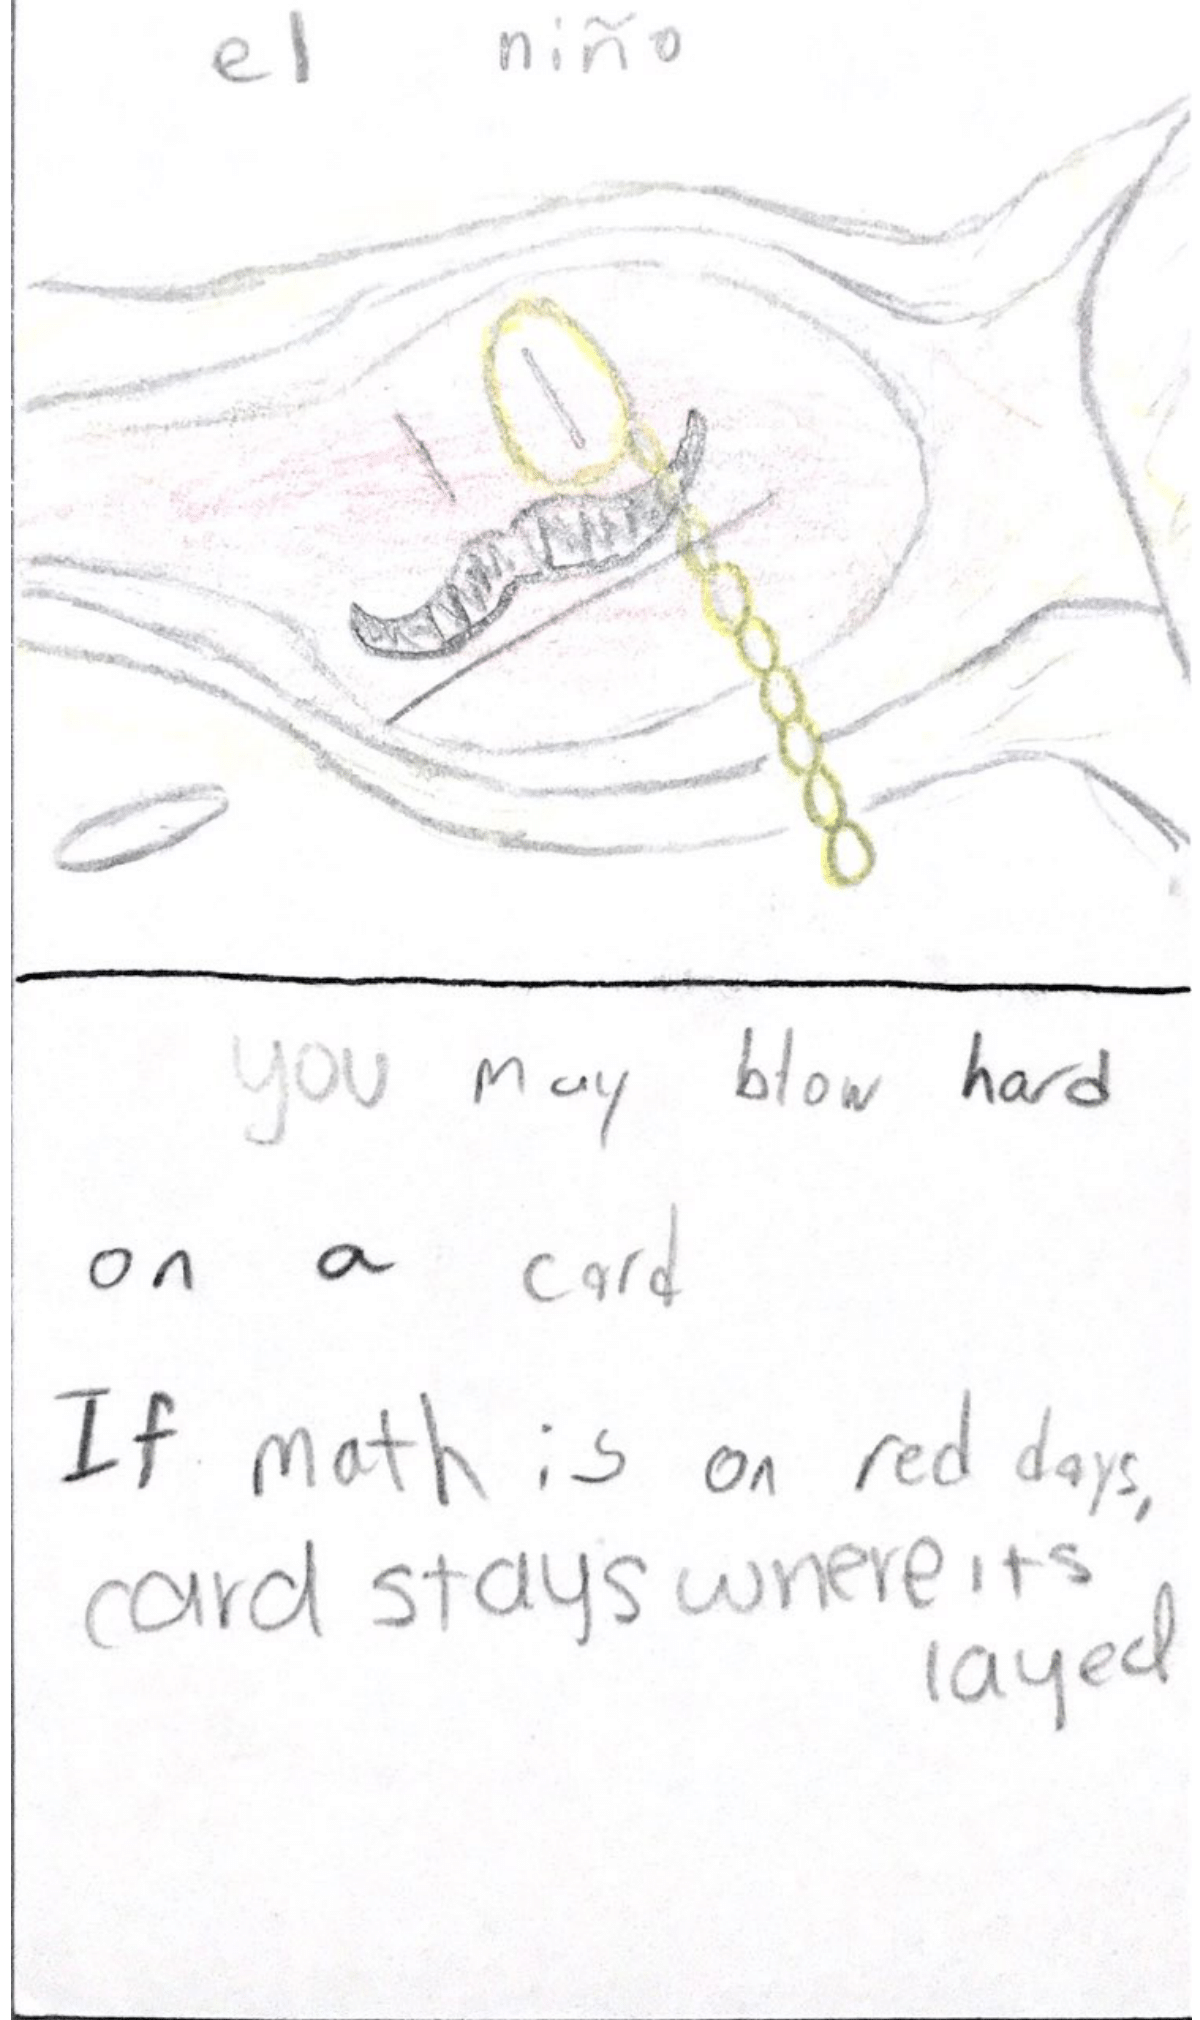 el niño
you may blow hard
on a card
If math is on red days,
card stays where its
layed